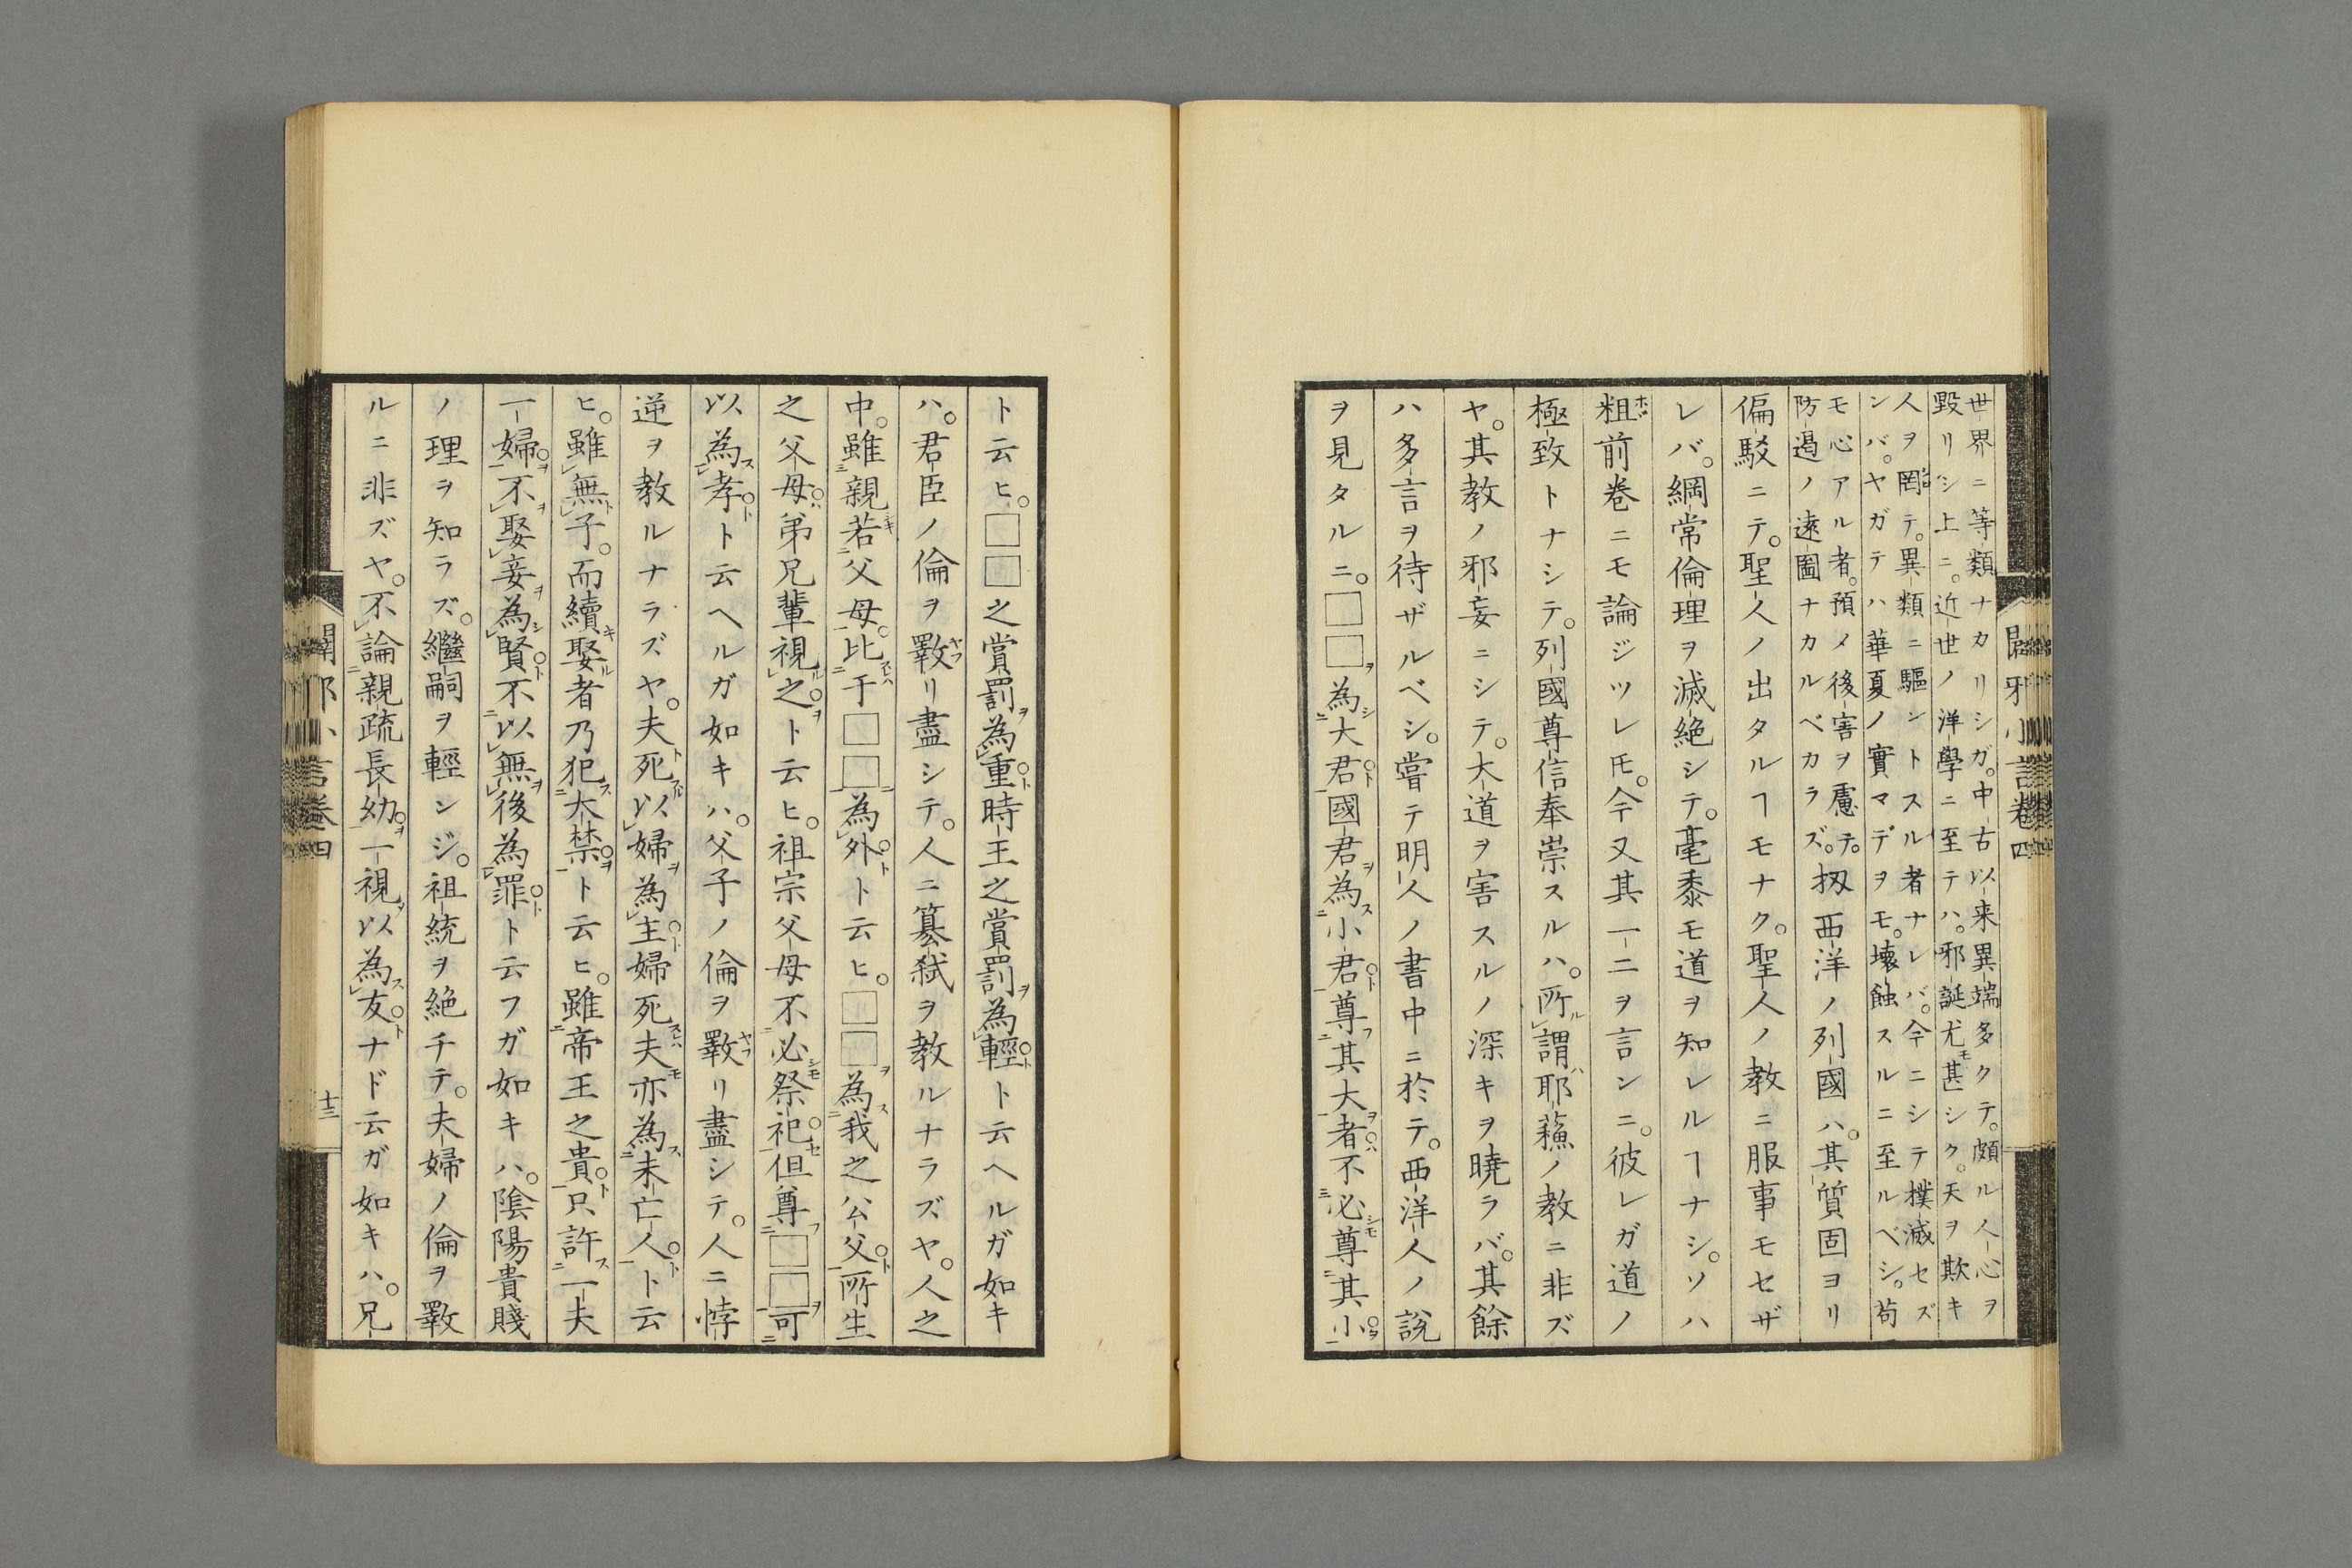 世界ニ等類ナカリシガ。中古以来異端多クテ。頗ル人心ヲ
毀リシ上ニ。近世ノ洋學ニ至テハ。邪誕尤甚シク。天ヲ欺キ
人ヲ罔テ。異類ニ驅ントスル者ナレバ。今ニシテ撲滅セズ
ンバ。ヤガテハ華夏ノ實マデヲモ。壊蝕スルニ至ルベシ。苟
モ心アル者。預メ後害ヲ慮テ。
防遏ノ遠圖ナカルベカラズ。扨西洋ノ列國ハ。其質固ヨリ
偏駁ニテ。聖人ノ出タルヿモナク。聖人ノ教ニ服事モセザ
レバ。綱常倫理ヲ滅絶シテ。毫黍モ道ヲ知レルヿナシ。ソハ
粗前巻ニモ論ジツレ𪜈。今又其一二ヲ言ンニ。彼レガ道ノ
極致トナシテ。列國尊信奉崇スルハ。所謂耶蘓ノ教ニ非ズ
ヤ。其教ノ邪妄ニシテ。大道ヲ害スルノ深キヲ曉ラバ。其餘
ハ多言ヲ待ザルベシ。嘗テ明人ノ書中ニ於テ。西洋人ノ說
ヲ見タルニ。□□為大君國君為小君尊其大者不必尊其小
闢邪小言巻四
ト云ヒ。□□之賞罰為重時王之賞罰為輕ト云ヘルガ如キ
ハ。君臣ノ倫ヲ斁リ盡シテ。人ニ簒弑ヲ教ルナラズヤ。人之
中。雖親若父母。比于□□為外ト云ヒ。□□為我之公父所生
之父母弟兄輩視之ト云ヒ。祖宗父母不必祭祀但尊□□可
以為孝ト云ヘルガ如キハ。父子ノ倫ヲ斁リ盡シテ。人ニ悖
逆ヲ教ルナラズヤ。夫死以婦為主婦死夫亦為未亡人ト云
ヒ。雖無子。而續娶者乃犯大禁ト云ヒ。雖帝王之貴只許一夫
一婦不娶妾為賢不以無後為罪ト云フガ如キハ。陰陽貴賤
ノ理ヲ知ラズ。繼嗣ヲ輕ンジ。祖統ヲ絶チテ。夫婦ノ倫ヲ斁
ルニ非ズヤ。不論親疏長幼一視以為友ナド云ガ如キハ。兄
闢邪小言巻四
十三